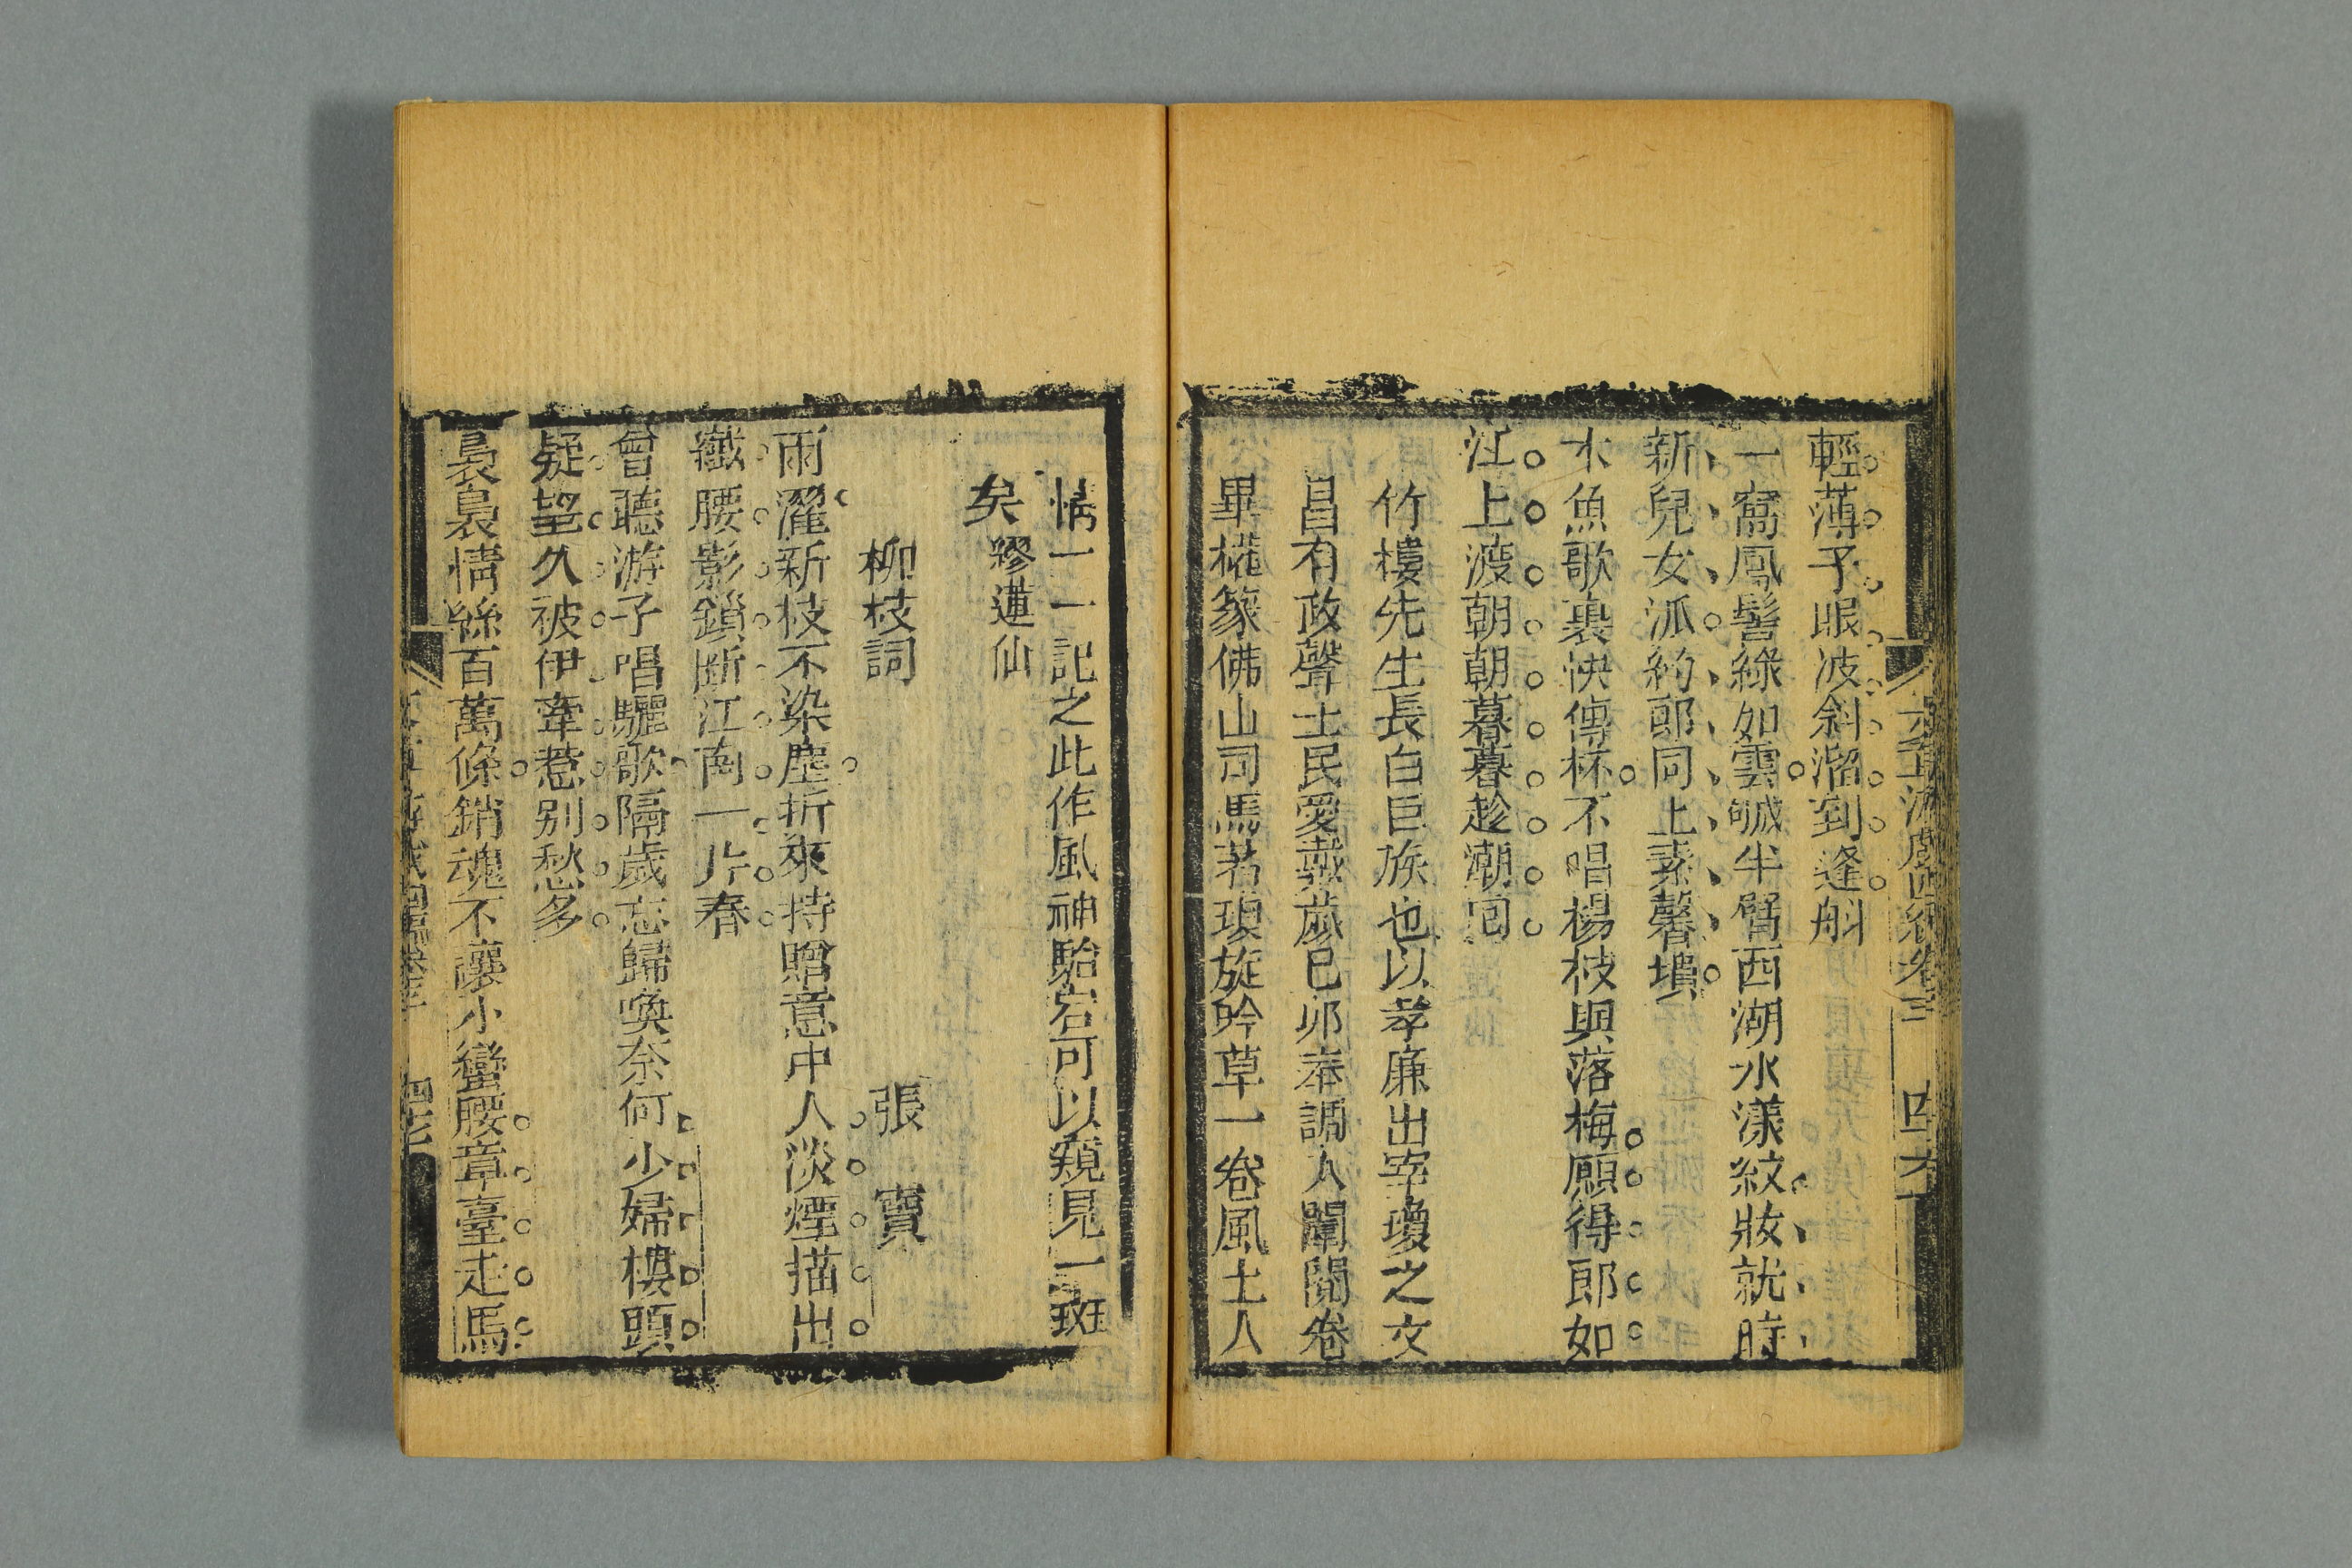 輕薄子眼波斜溜到篷舟
一窩鳳髻綠如雲㡌半臂西湖水漾紋妝就時
新兒女派約郎同上素馨墳
木魚歌裏快傳杯不唱楊枝與落梅願得郎如
江上渡朝朝暮暮趁潮囘
竹樓先生長白巨族也以孝廉出宰瓊之文
昌有政聲士民愛戴歲己卯奉調入闈閱卷
畢榷篆佛山司馬著琅旋吟草一卷風土人
情一一記之此作風神駘宕可以窺見一斑
矣 繆蓮仙
柳枝詞 張寶
雨濯新枝不染塵折來持贈意中人淡煙描出
纖腰影鎖斷江南一片春
曾聽游子唱驪歌隔歲忘歸喚奈何少婦樓頭
疑望久被伊牽惹别愁多
裊裊情絲百萬條銷魂不讓小蠻腰章臺走馬